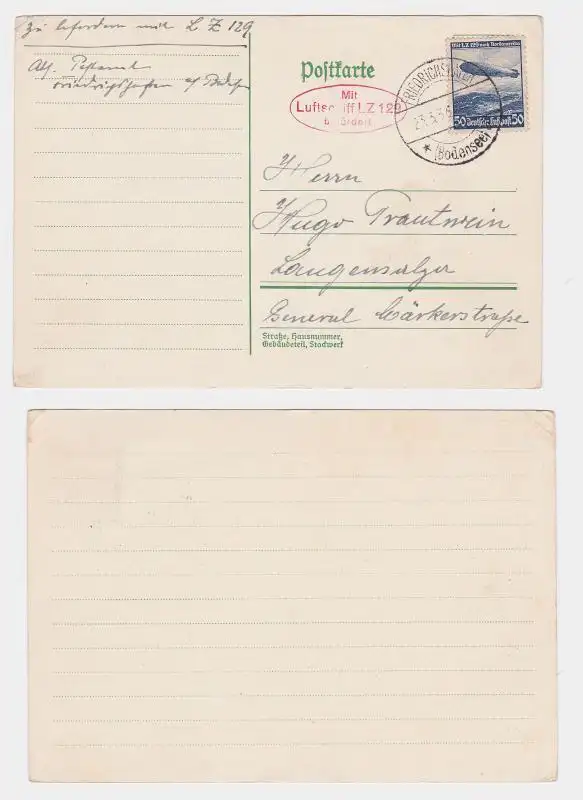 zu befördern mit L Z 129
Abs. Postamt
Friedrichshafen a/ Bodensee
Postkarte
Mit
Luftschiff LZ 129
befördert
Mit LZ 129 nach Nordamerika
50 Deutsche Luftpost 50
FRIEDRICHSHAFEN
23.3.36
* (Bodensee)
Herrn
Hugo Trautwein
Langensalza
General Märkerstraße
Straße, Hausnummer,
Gebäudeteil, Stockwerk